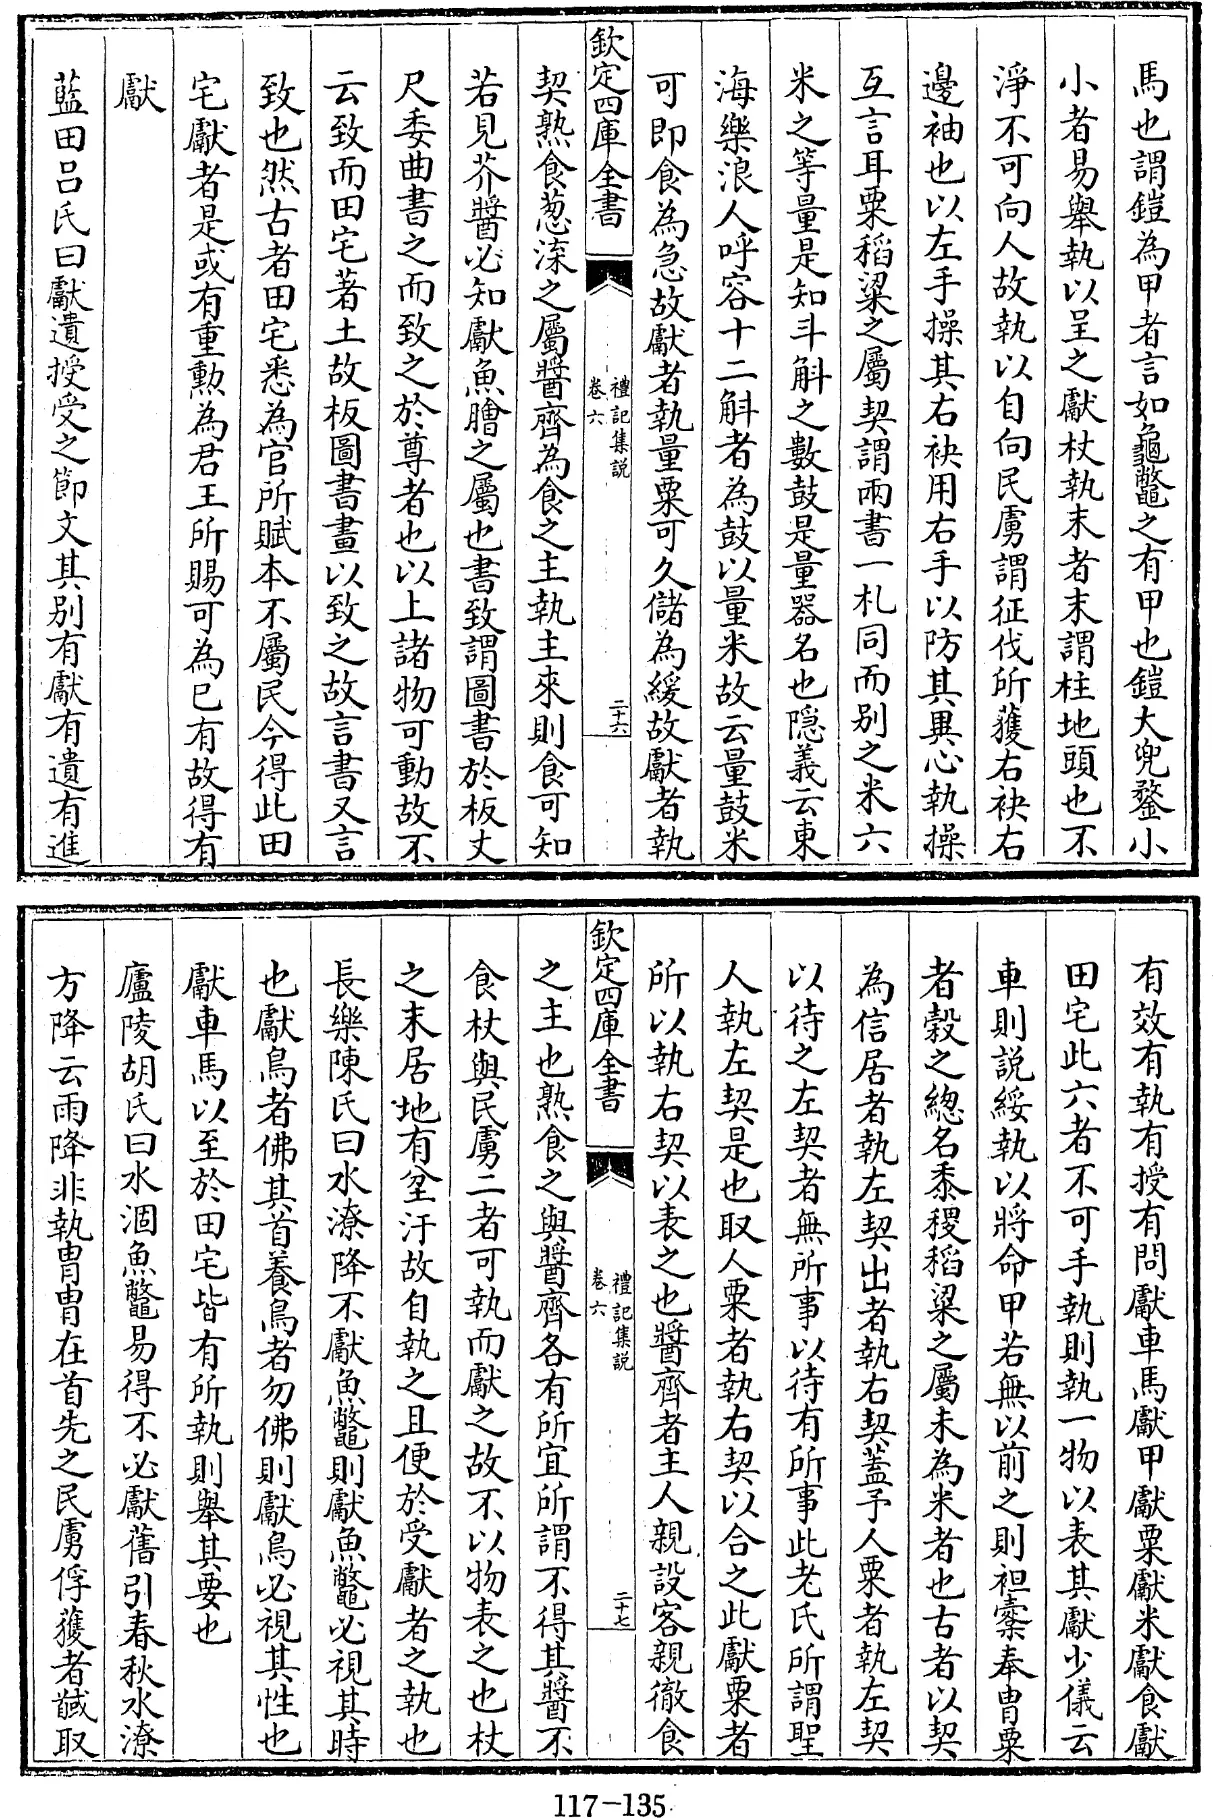 馬也謂鎧為甲者言如龜鼈之有甲也鎧大兜鍪小
小者易舉執以呈之獻杖執末者末謂柱地頭也不
淨不可向人故執以自向民虜謂征伐所獲右袂右
邊袖也以左手操其右袂用右手以防其異心執操
互言耳粟稻粱之屬契謂兩書一札同而别之米六
米之等量是知斗斛之數鼓是量器名也隠義云東
海樂浪人呼容十二斛者為鼓以量米故云量鼓米
可即食為急故獻者執量粟可久儲為緩故獻者執
欽定四庫全書
禮記集説
卷六
二十六
契熟食葱㴃之屬醬齊為食之主執主來則食可知
若見芥醬必知獻魚膾之屬也書致謂圖書於板丈
尺委曲書之而致之於尊者也以上諸物可動故不
云致而田宅著土故板圖書畫以致之故言書又言
致也然古者田宅悉為官所賦本不屬民今得此田
宅獻者是或有重勲為君王所賜可為已有故得有
獻
藍田吕氏曰獻遺授受之節文其别有獻有遺有進
有效有執有授有問獻車馬獻甲獻粟獻米獻食獻
田宅此六者不可手執則執一物以表其獻少儀云
車則説綏執以將命甲若無以前之則袒櫜奉胄粟
者穀之總名黍稷稻粱之屬未為米者也古者以契
為信居者執左契出者執右契蓋予人粟者執左契
以待之左契者無所事以待有所事此老氏所謂聖
人執左契是也取人粟者執右契以合之此獻粟者
所以執右契以表之也醬齊者主人親設客親徹食
欽定四庫全書
禮記集説
卷六
二十七
之主也熟食之與醬齊各有所宜所謂不得其醬不
食杖與民虜二者可執而獻之故不以物表之也杖
之末居地有坌汙故自執之且便於受獻者之執也
長樂陳氏曰水潦降不獻魚鼈則獻魚鼈必視其時
也獻鳥者佛其首養鳥者勿佛則獻鳥必視其性也
獻車馬以至於田宅皆有所執則舉其要也
廬陵胡氏曰水涸魚鼈易得不必獻舊引春秋水潦
方降云雨降非執胄胄在首先之民虜俘獲者馘取
117-135